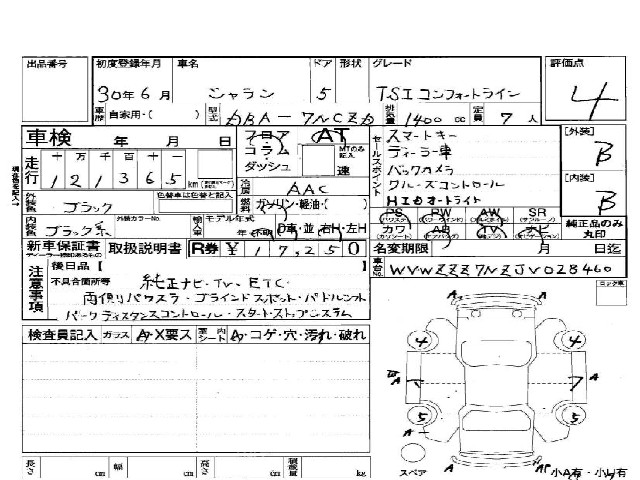 出品番号 初度登録年月 車名 ドア 形状 グレード 評価点
30年6月 シャラン 5 TSI コンフォートライン 4
車歴 自家用・( ) 型式 ABA-7NCZD 排気量 1400 cc 定員 7 人
車検 年 月 日 フロア AT
コラム MTのみ記入
ダッシュ 速
走行 十 万 千 百 十 一
1 2 1 3 6 5 km
冷房 AAC
外装色 ブラック 色替車は色替と記入 燃料 ガソリン・軽油・( )
内装色 ブラック系 外装カラーNo. 輸入車 モデル年式 年 D車・並 右H・左H
新車保証書 取扱説明書 R券 ¥ 17,250
セールスポイント
スマートキー
ディーラー車
バックカメラ
クルーズコントロール
HIDオートライト
PS PW AW SR
カワ AB TV ナビ
純正品のみ丸印
[外装] B
[内装] B
名変期限 月 日迄
車台No. WVWZZZ7NZJV028460
注意事項 後日品【
不具合箇所等 純正ナビ・TV・ETC
両側パワスラ・ブラインドスポット・パドルシフト
パークディスタンスコントロール・スタートストップシステム
検査員記入 ガラス A・X要ス 室内シート A・コゲ・穴・汚れ・破れ
ロック車
4 4
W A A
A 7
5 5
A A AP
スペア 小A有・小U有
長さ cm 幅 cm 高さ cm 積載量 kg